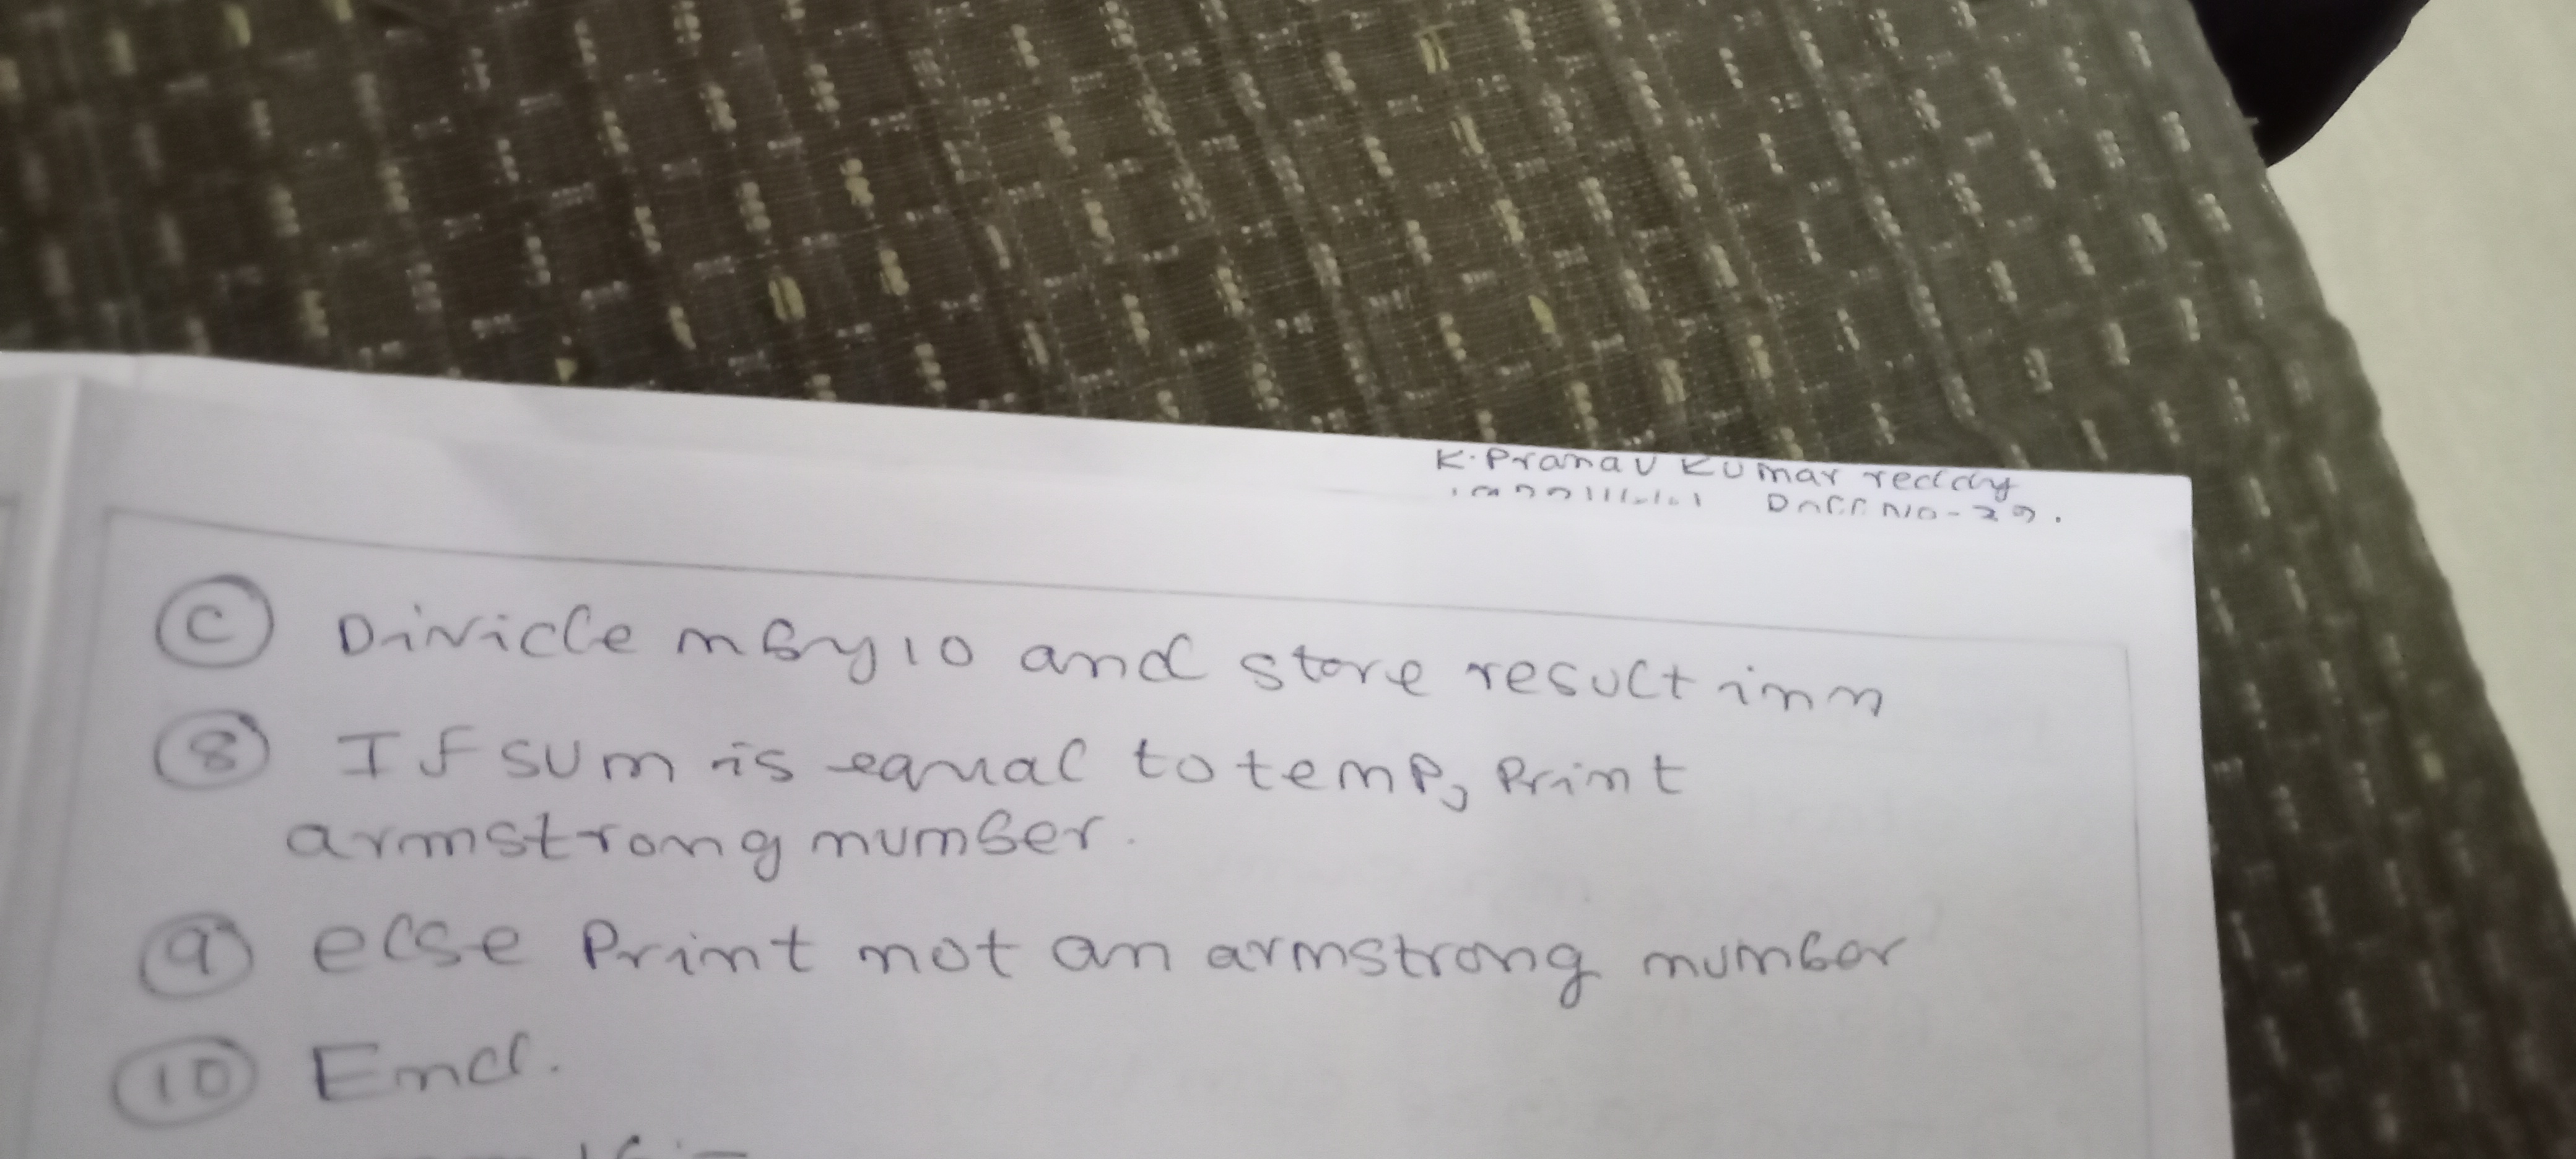 K. Pranav Kumar reddy
Roll No-29.
C Divide n by 10 and store result in n
8 If sum is equal to temp, Print
armstrong number.
9 else Print not an armstrong number
10 End.